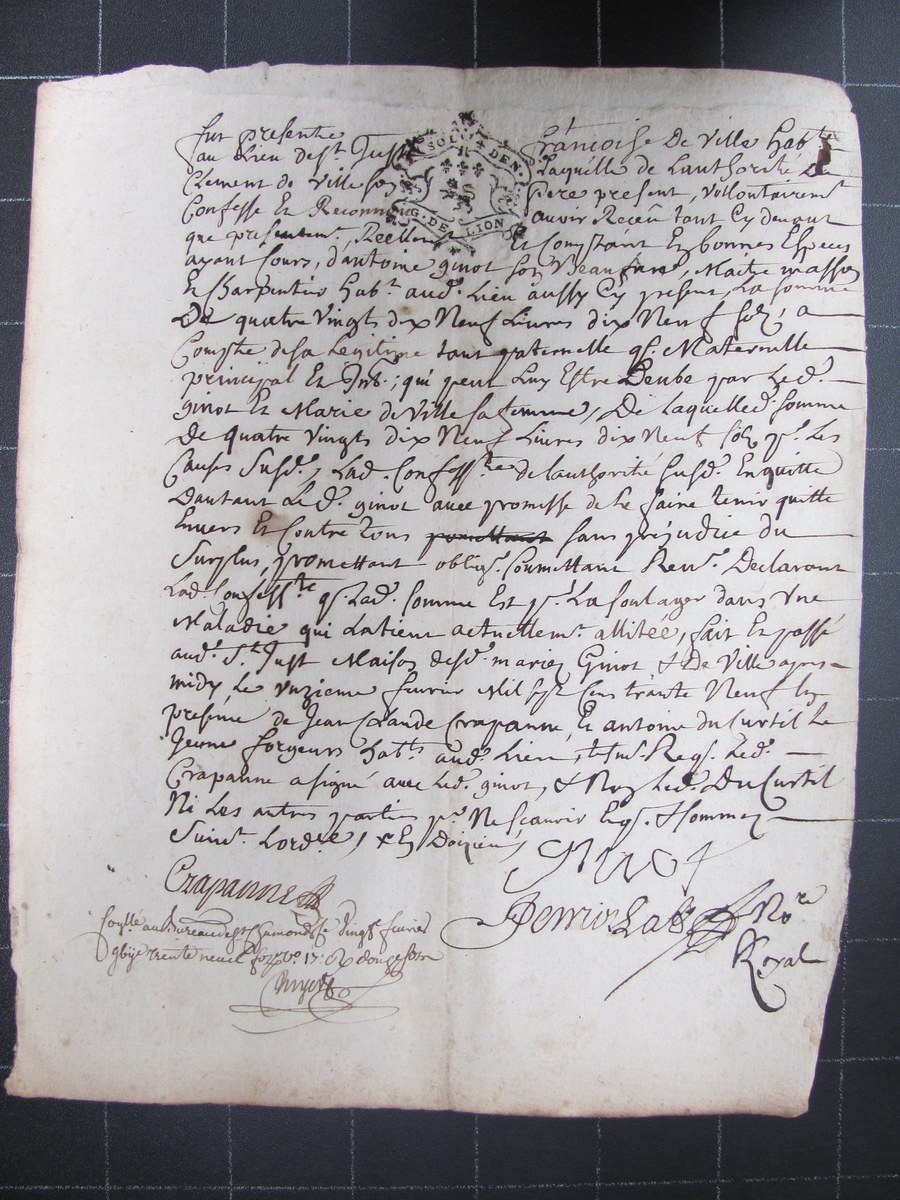 fut presente Françoise De ville habte
au Lieu de st Just Laquelle de Lauthorité de
Clement de ville son pere present, vollontairemt
Confesse Et Reconnu avoir Receu tant Cy devant
que presentemt, Reellemt Et Comptant En bonnes Especes
ayant Cours, d'antoine ginot son Beau frere, Maitre masson
Et Charpentier habt aud. Lieu aussy Cy present, La somme
De quatre vingts dix Neuf Livres dix Neuf sols, a
Compte de sa Legitime tant paternelle q. Maternelle
principal Et Int.; qui peut Luy Estre Deube par Led.
ginot Et Marie de ville sa femme, De Laquelle d. somme
De quatre vingts dix Neuf Livres dix Neuf sols pr. Les
Causes Susd., Lad. Confesste de lauthorité susd. En quitte
Dautant Le d. ginot avec promesse de Le faire tenir quitte
Envers Et Contre tous promettant sans prejudice du
Surplus, promettant oblig. soumettant Ren. Declarant
Lad. Confesste q. Lad. somme Est pr. La soulager dans Une
Maladie qui La tient actuellemt. allitée, fait Et passé
aud. St. Just Maison desd. mariez Ginot & De Ville apres
midy Le vnzieme fevrier Mil sept Cens trante Neuf En
presence de Jean Claude Crapanne, Et antoine du Curtil Le
Jeune forgeurs habts aud. Lieu, tem. Req. Led.
Crapanne a signé avec Led. ginot, & Non Led. Du Curtil
Ni Les autres parties pr. Ne scavoir Enq. & Sommez
Suivt. Lordre,
SOL DEN.
G. DE LION
Crapanne
Ginot
Nore
Royal
au Bureau de st Chamond le vingt fevrier
trente neuf